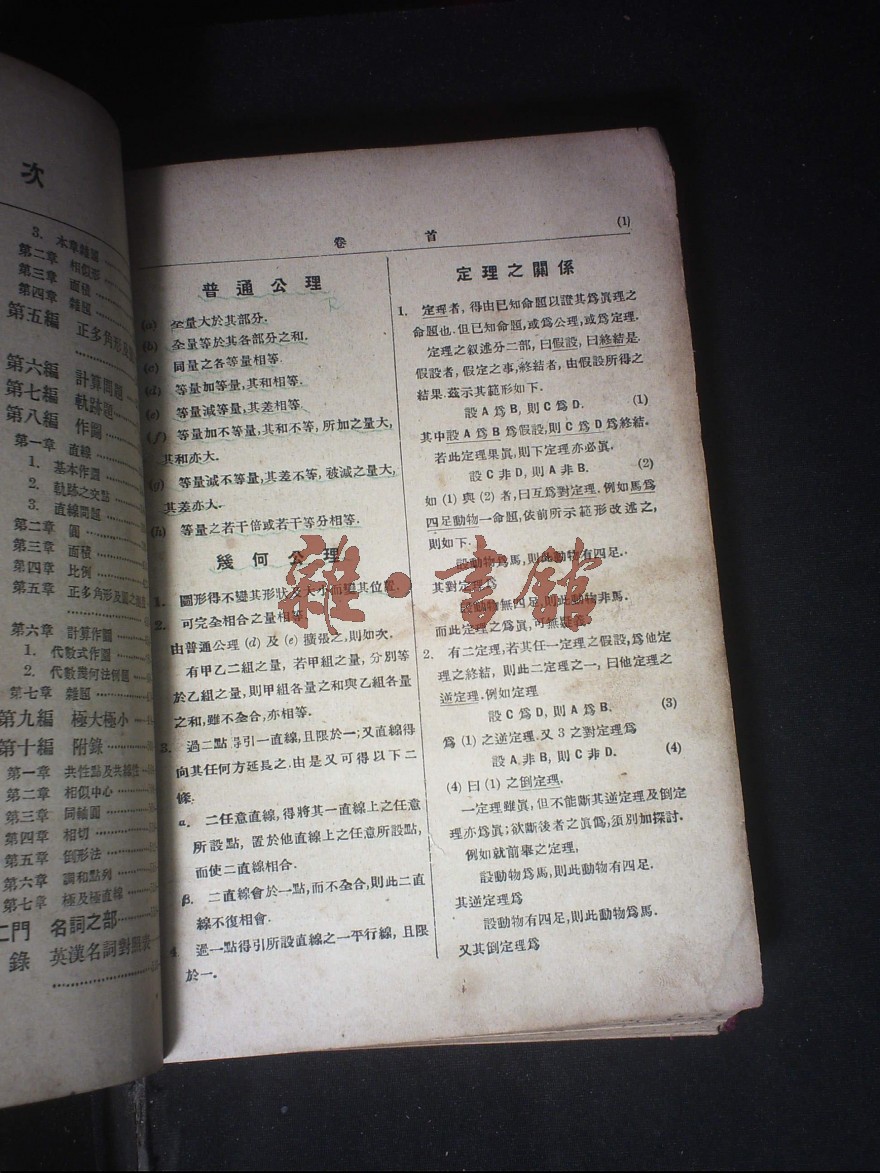 次
3. 本章雜題
第二章 相似形
第三章 面積
第四章 雜題
第五編 正多角形及
第六編 計算問題
第七編 軌跡題
第八編 作圖
第一章 直線
1. 基本作圖
2. 軌跡之交點
3. 直線問題
第二章 圓
第三章 面積
第四章 比例
第五章 正多角形及圓之
第六章 計算作圖
1. 代數式作圖
2. 代數幾何法例題
第七章 雜題
第九編 極大極小
第十編 附錄
第一章 共性點及共線性
第二章 相似中心
第三章 同軸圓
第四章 相切
第五章 倒形法
第六章 調和點列
第七章 極及極直線
二門 名詞之部
錄 英漢名詞對照表
卷 首
(1)
普通公理
(a) 全量大於其部分.
(b) 全量等於其各部分之和.
(c) 同量之各等量相等.
(d) 等量加等量,其和相等.
(e) 等量減等量,其差相等.
(f) 等量加不等量,其和不等,所加之量大,
其和亦大.
(g) 等量減不等量,其差不等,被減之量大,
其差亦大.
(h) 等量之若干倍或若干等分相等.
幾何公理
1. 圖形得不變其形狀及大小而變其位置.
2. 可完全相合之量相等.
由普通公理 (d) 及 (e) 擴張之,則如次.
有甲乙二組之量,若甲組各量,分別等
於乙組之量,則甲組各量之和與乙組各量
之和,雖不全合,亦相等.
3. 過二點得引一直線,且限於一;又直線得
向其任何方延長之.由是又可得以下二
條.
α. 二任意直線,得將其一直線上之任意
所設點,置於他直線上之任意所設點,
而使二直線相合.
β. 二直線會於一點,而不全合,則此二直
線不復相會.
4. 過一點得引所設直線之一平行線,且限
於一.
定理之關係
1. 定理者,得由已知命題以證其爲眞理之
命題也.但已知命題,或爲公理,或爲定理.
定理之叙述分二部,曰假設,曰終結是.
假設者,假定之事,終結者,由假設所得之
結果.茲示其範形如下.
設 A 爲 B,則 C 爲 D. (1)
其中設 A 爲 B 爲假設,則 C 爲 D 爲終結.
若此定理果眞,則下定理亦必眞.
設 C 非 D,則 A 非 B. (2)
如 (1) 與 (2) 者,曰互爲對定理.例如馬爲
四足動物一命題,依前所示範形改述之,
則如下.
設動物爲馬,則此動物有四足.
其對定理爲
設動物無四足,則此動物非馬.
而此定理之爲眞,可無疑義.
2. 有二定理,若其任一定理之假設,爲他定
理之終結,則此二定理之一,曰他定理之
逆定理.例如定理
設 C 爲 D,則 A 爲 B. (3)
爲 (1) 之逆定理.又 3 之對定理爲
設 A 非 B,則 C 非 D. (4)
(4) 曰 (1) 之倒定理.
一定理雖眞,但不能斷其逆定理及倒定
理亦爲眞;欲斷後者之眞僞,須別加探討.
例如就前舉之定理,
設動物爲馬,則此動物有四足.
其逆定理爲
設動物有四足,則此動物爲馬.
又其倒定理爲
雜·書館